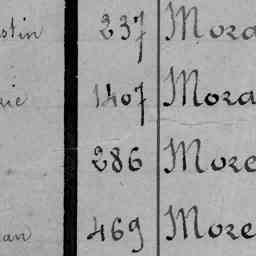 stin 237 Mora
rie 1407 Mora
286 More
an 469 More